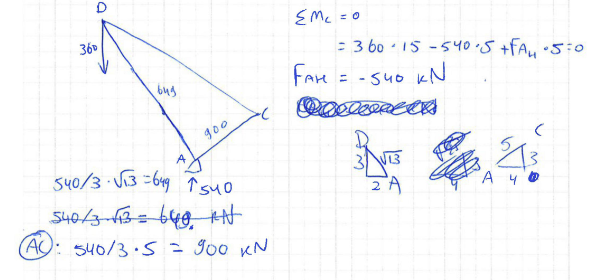 D
360
649
900
C
A
540
540/3 · √13 = 649
540/3 · √13 = 649. kN
AC : 540/3 · 5 = 900 kN
ΣM_C = 0
= 360 · 15 - 540 · 5 + F_AH · 5 = 0
F_AH = -540 kN
D
3
√13
2
A
4
5
C
3
A
4